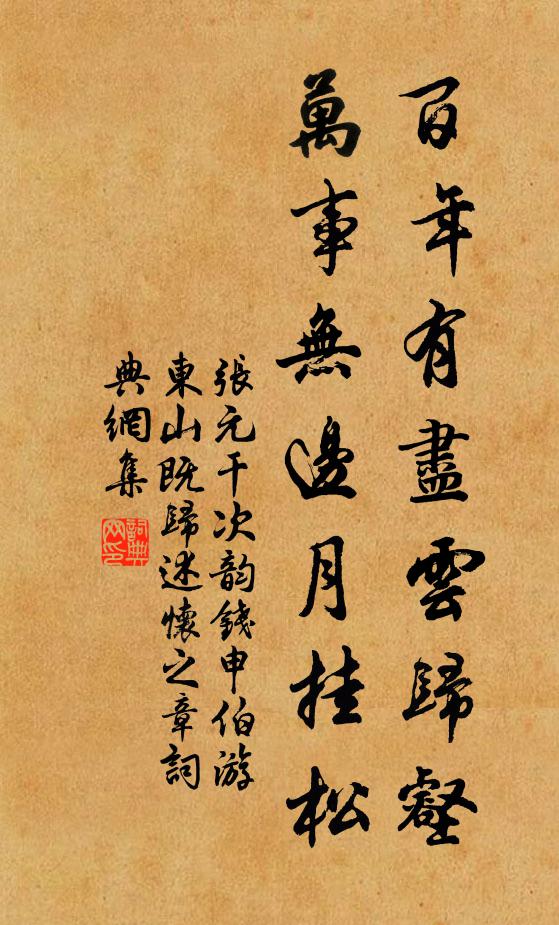 百年有盡雲歸壑
萬事無邊月挂松
張元干次韵錢申伯游
東山既歸述懷之章詞
典網集
詞典
网印